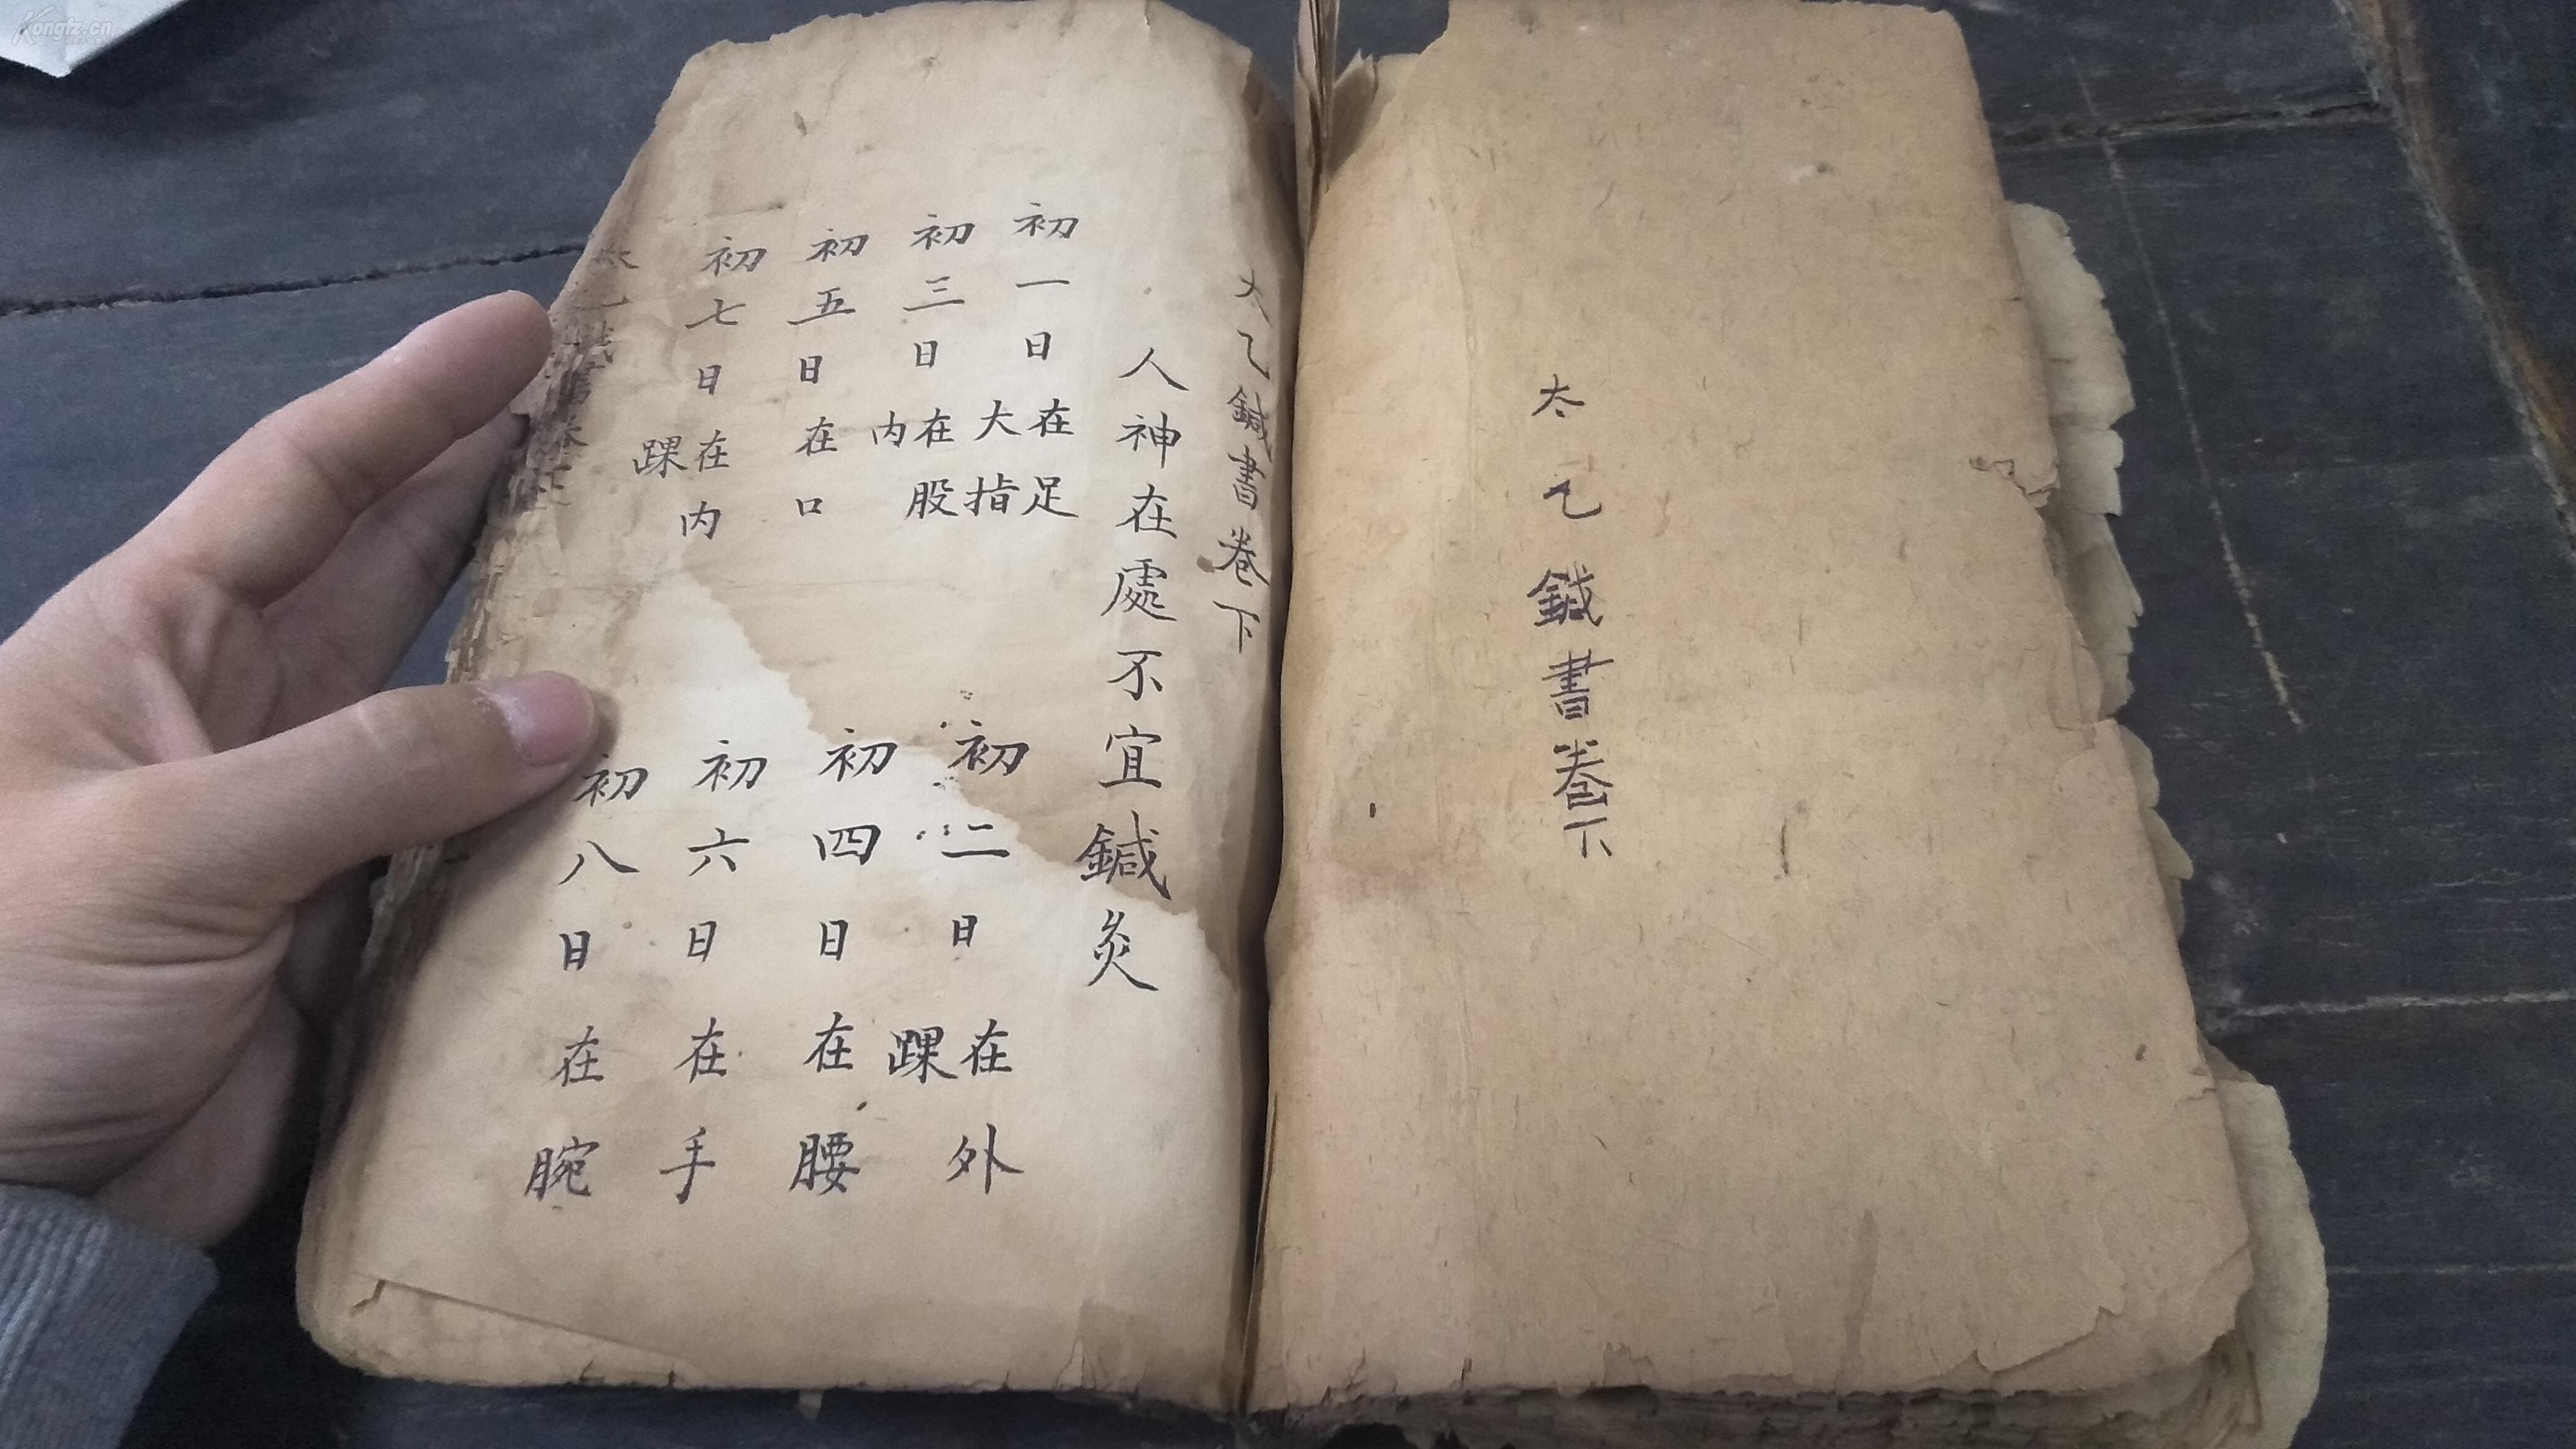 Kongfz.cn
太乙鍼書卷下
太乙鍼書卷下
人神在處不宜鍼灸
初一日在足大指
初二日在外踝
初三日在股内
初四日在腰
初五日在口
初六日在手
初七日在内踝
初八日在腕